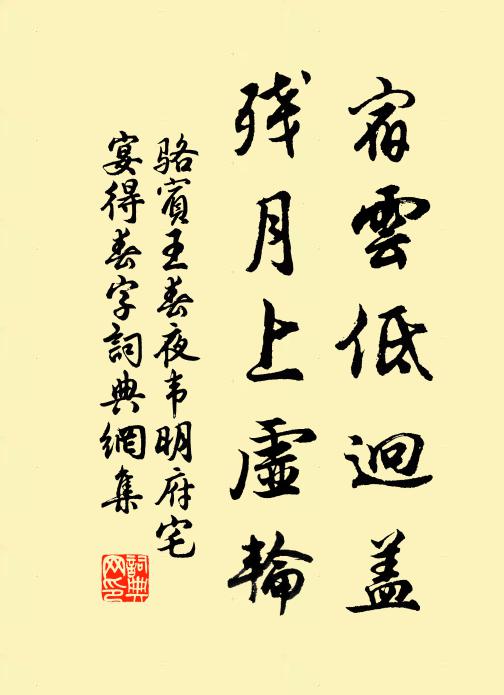 宿雲低迥盖
残月上虛輪
骆賓王春夜韦明府宅
宴得春字詞典網集
詞典
网印